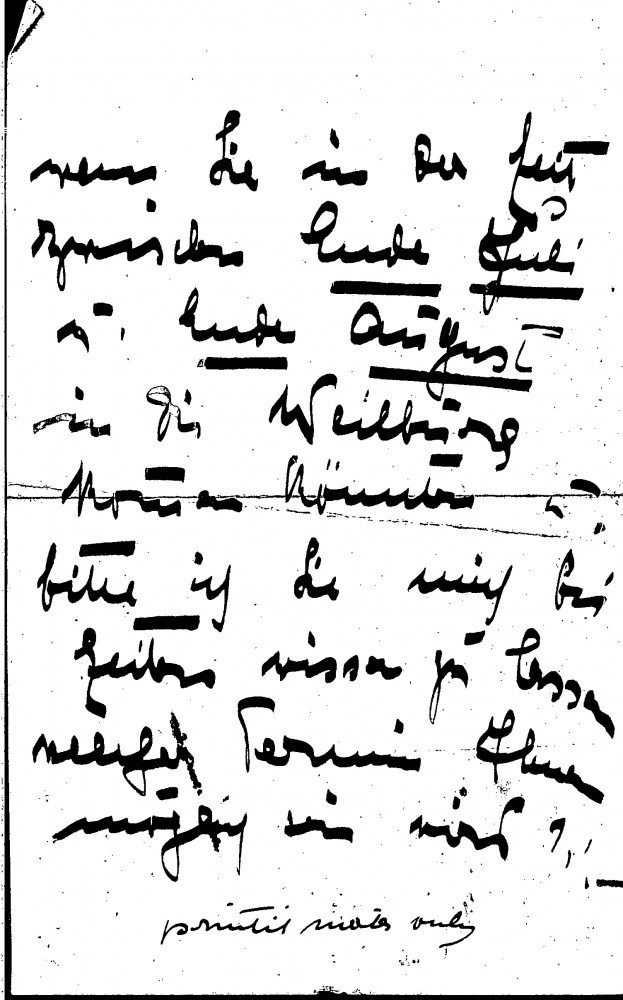 wenn Sie in der Zeit
zwischen Ende Juli
u. Ende August
in die Weilburg
kommen könnten u.
bitte ich Sie mich bei
Zeiten wissen zu lassen
welcher Termin Ihnen
möglich sein wird?
only